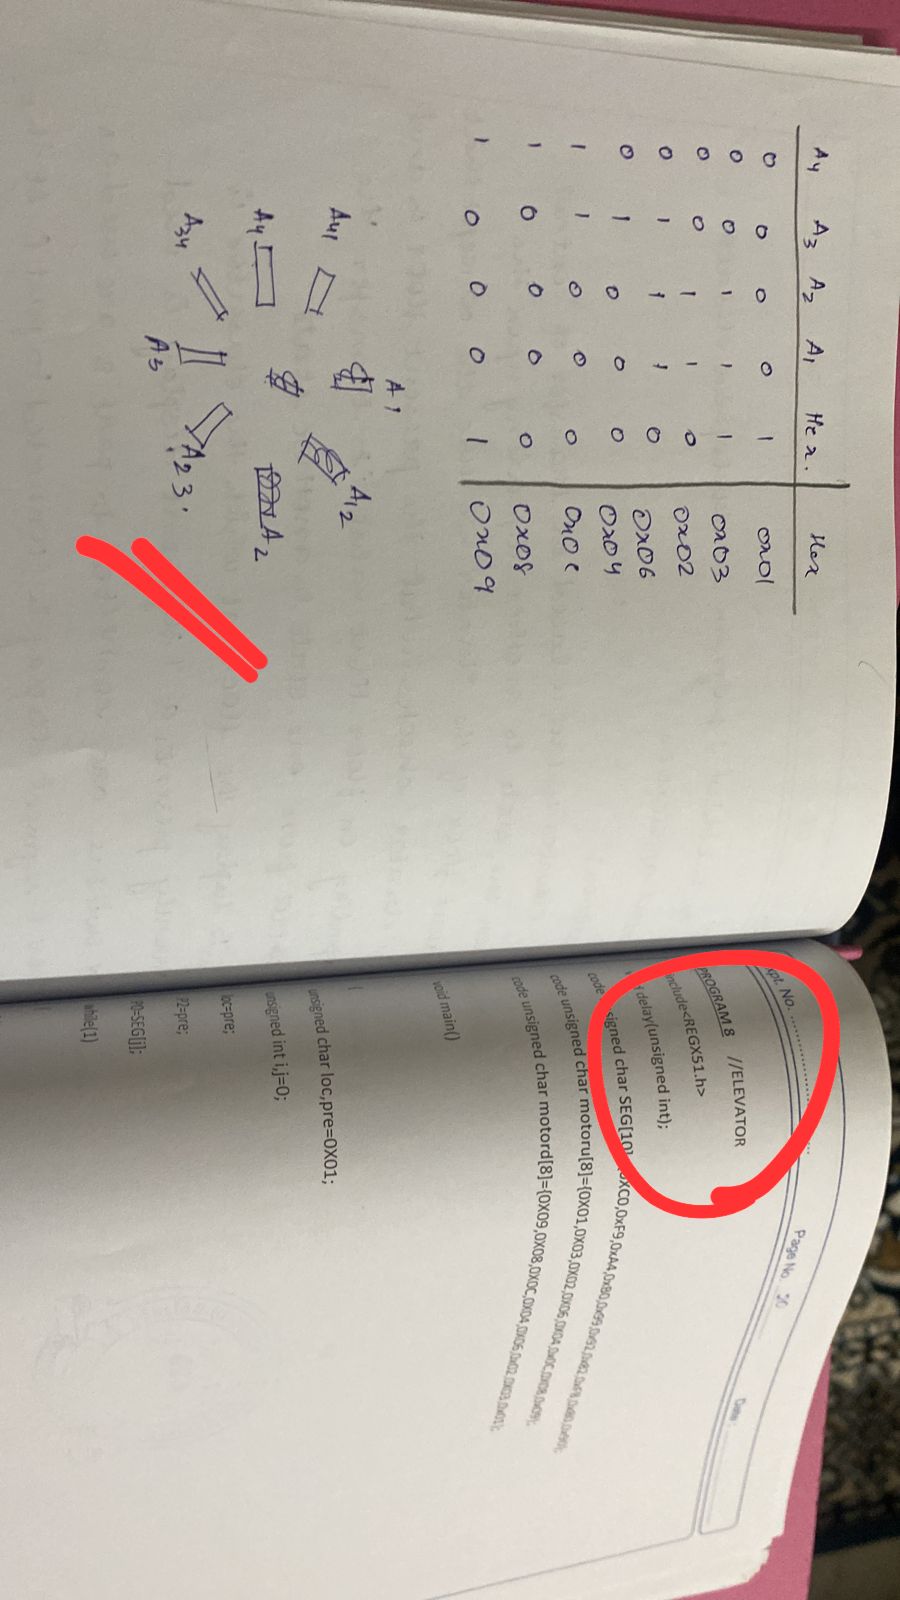 A4 A3 A2 A1 Hex. Hex
0 0 0 0 1 0x01
0 0 1 1 1 0x03
0 0 1 1 0 0x02
0 1 1 1 0 0x06
0 1 0 0 0 0x04
1 1 0 0 0 0x0C
1 0 0 0 0 0x08
1 0 0 0 1 0x09
A1
A41
A12
A4
A2
A34
A23.
A3
xpt. No.
Page No. 50
Date:
PROGRAM 8 //ELEVATOR
include<REGX51.h>
delay(unsigned int);
code unsigned char SEG[10] 0XC0,0xF9,0xA4,0xB0,0x99,0x92,0x82,0xF8,0x80,0x90};
code unsigned char motoru[8]={0X01,0X03,0X02,0X06,0X04,0x0C,0X08,0x09};
code unsigned char motord[8]={0X09,0X08,0X0C,0X04,0X06,0x02,0X03,0x01};
void main()
{
unsigned char loc,pre=0X01;
unsigned int i,j=0;
loc=pre;
P2=pre;
P0=SEG[j];
while(1)
{